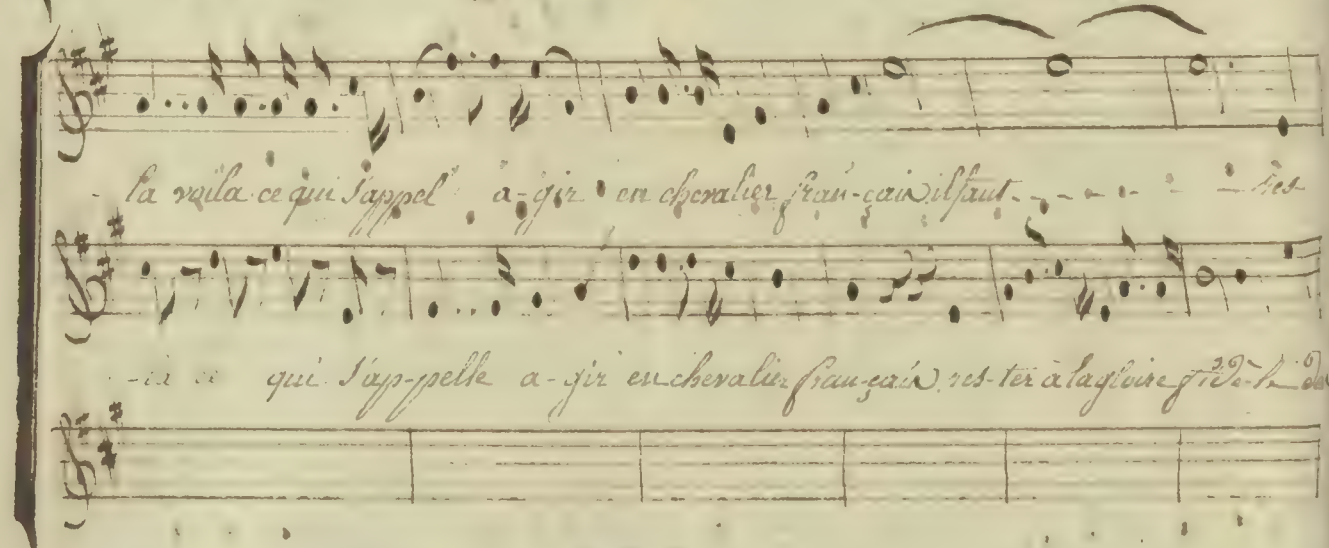 la voila ce qui s'appel' a-gir en chevalier fran-çais il faut - - - - - - - res
qui s'ap-pelle a-gir en chevalier fran-çais res-ter à la gloire fidè-le